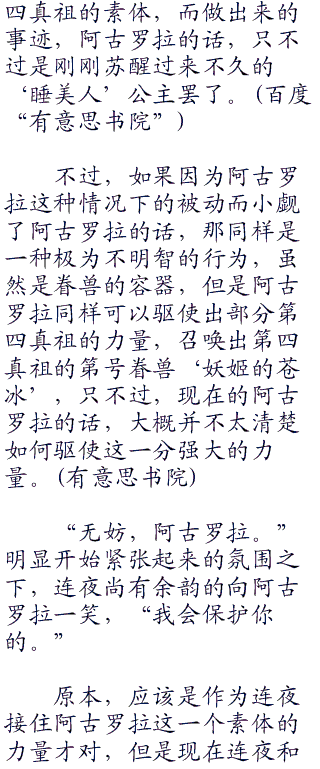 四真祖的素体，而做出来的
事迹，阿古罗拉的话，只不
过是刚刚苏醒过来不久的
‘睡美人’公主罢了。(百度
“有意思书院”)
不过，如果因为阿古罗
拉这种情况下的被动而小觑
了阿古罗拉的话，那同样是
一种极为不明智的行为，虽
然是眷兽的容器，但是阿古
罗拉同样可以驱使出部分第
四真祖的力量，召唤出第四
真祖的第号眷兽‘妖姬的苍
冰’，只不过，现在的阿古
罗拉的话，大概并不太清楚
如何驱使这一分强大的力
量。(有意思书院)
“无妨，阿古罗拉。”
明显开始紧张起来的氛围之
下，连夜尚有余韵的向阿古
罗拉一笑，“我会保护你
的。”
原本，应该是作为连夜
接住阿古罗拉这一个素体的
力量才对，但是现在连夜和